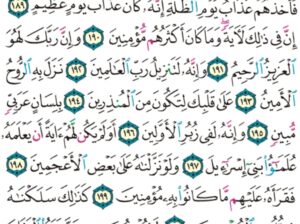 فَأَخَذَهُمْ عَذَابُ يَوْمِ الظُّلَّةِ إِنَّهُ كَانَ عَذَابَ يَوْمٍ عَظِيمٍ ١٨٩
إِنَّ فِي ذَٰلِكَ لَآيَةً وَمَا كَانَ أَكْثَرُهُم مُّؤْمِنِينَ ١٩٠ وَإِنَّ رَبَّكَ لَهُوَ
الْعَزِيزُ الرَّحِيمُ ١٩١ وَإِنَّهُ لَتَنزِيلُ رَبِّ الْعَالَمِينَ ١٩٢ نَزَلَ بِهِ الرُّوحُ
الْأَمِينُ ١٩٣ عَلَىٰ قَلْبِكَ لِتَكُونَ مِنَ الْمُنذِرِينَ ١٩٤ بِلِسَانٍ عَرَبِيٍّ
مُّبِينٍ ١٩٥ وَإِنَّهُ لَفِي زُبُرِ الْأَوَّلِينَ ١٩٦ أَوَلَمْ يَكُن لَّهُمْ آيَةً أَن يَعْلَمَهُ
عُلَمَاءُ بَنِي إِسْرَائِيلَ ١٩٧ وَلَوْ نَزَّلْنَاهُ عَلَىٰ بَعْضِ الْأَعْجَمِينَ ١٩٨
فَقَرَأَهُ عَلَيْهِم مَّا كَانُوا بِهِ مُؤْمِنِينَ ١٩٩ كَذَٰلِكَ سَلَكْنَاهُ